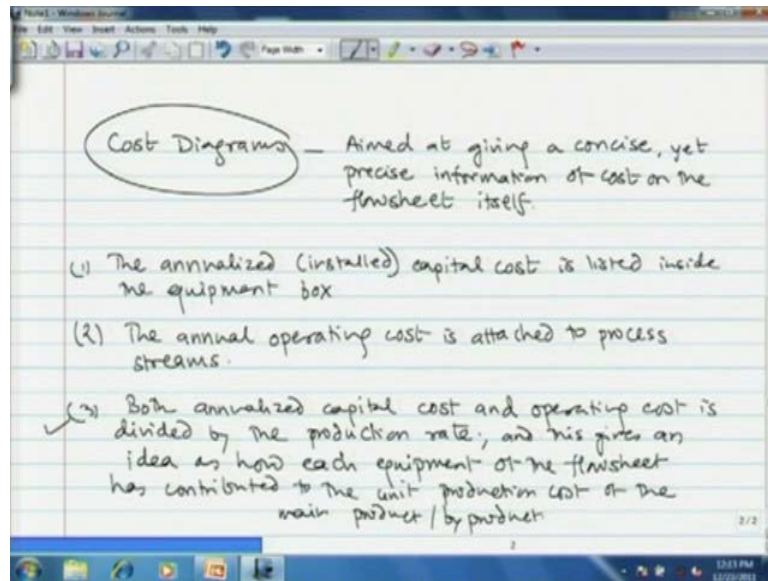 Note1 - Windows Journal
File Edit View Insert Actions Tools Help
Page Width
Cost Diagrams — Aimed at giving a concise, yet
precise information of cost on the
flowsheet itself.
(1) The annualized (installed) capital cost is listed inside
the equipment box
(2) The annual operating cost is attached to process
streams.
(3) Both annualized capital cost and operating cost is
divided by the production rate, and this gives an
idea as how each equipment of the flowsheet
has contributed to the unit production cost of the
main product / by product
2/2
2
12:13 PM
12/23/2011